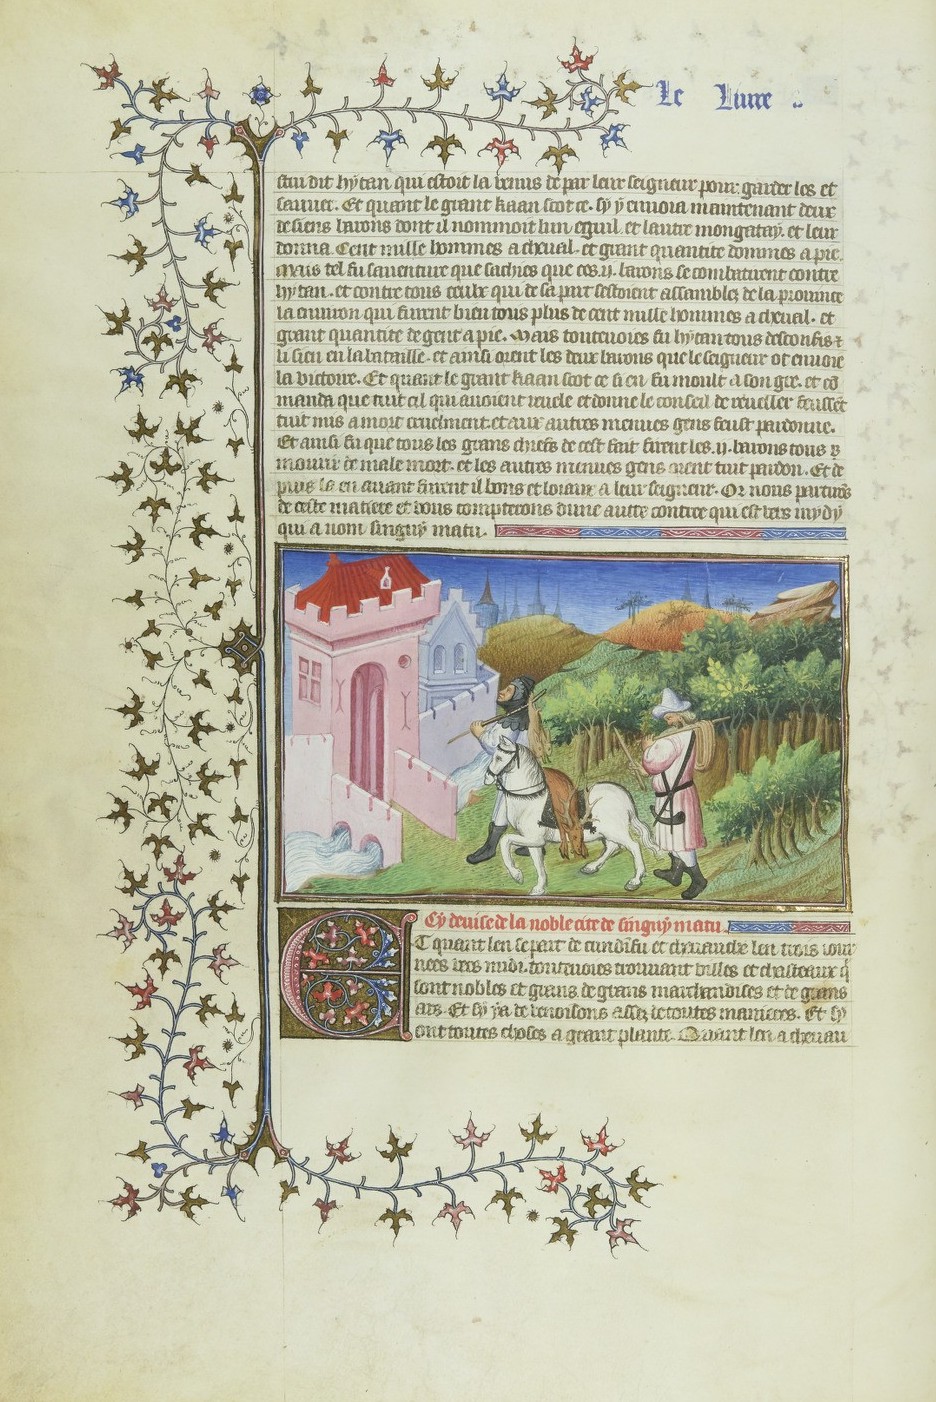 Le Liure
dit hytan qui estoit la venus de par leur seigneur pour garder les et
sauuer. Et quant le grant kaan scot ce. sy y enuoia maintenant deux
de siens barons dont il nommoit lun eguil et lautre mongatay. et leur
donna Cent mille hommes a cheual. et grant quantite dommes a pie.
Mais tel fu sauenture que sachies que ces .ij. barons se combatirent contre
hytan. et contre tous ceulx qui de sa part sestoient assamblez de la prouince
la enuiron qui furent bien tous plus de cent mille hommes a cheual. et
grant quantite de gent a pie. Mais toutevoies fu hytan tous desconfis et
li sien en la bataille. et ainsi orent les deux barons que le seigneur ot enuoie
la victoire. Et quant le grant kaan scot ce si en fu moult a son gre. et cõ
manda que tuit cil qui auoient reuele et donne le conseil de reueller feussēt
tuit mis a mort cruelment. et aux autres menues gens feust pardonne.
Et ainsi fu que tous les grans chiefs de cest fait furent les .ij. barons tous
mourir de male mort. et les autres menues gens orent tuit pardon. Et de
puis la en auant furent il bons et loiaux a leur seigneur. Or nous partirõs
de ceste matiere et vous compterons dune autre contree qui est vers mydy
qui a nom singuy matu.
Cy deuise de la noble cite de singuy matu.
Et quant len se part de cundifu et cheuauche len trois iour
nees vers midi. toutevoies trouuant villes et chasteaux q̃
sont nobles et grans. de grans marchandises et de grans
ars. Et sy ya de venoisons assez de toutes manieres. Et sy
ont toutes choses a grant plante. Quant len a cheuau